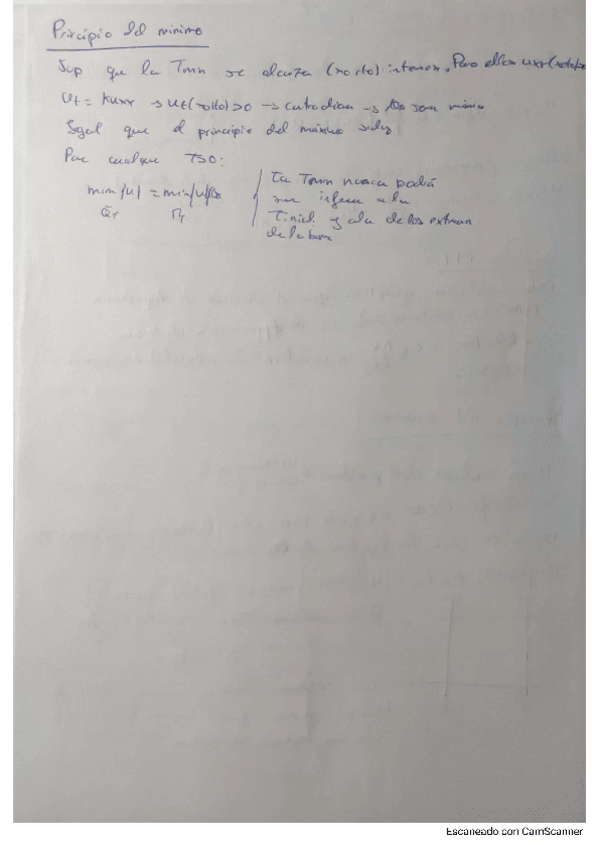 Principio del mínimo
Sup que la Tmin se alcanza (xo,to) interior. Pero ellos
Ut = Kuxx → Ut(xo,to)>0 → contradicion → No sera mínimo
Igual que el principio del máximo
Para cualquier T≥0:
min(u) = min(u)
Q̄T ΓT
La Tmin nunca podrá
ser inferior a la
T.inicial y a la de los extremos
de la barra
Escaneado con CamScanner